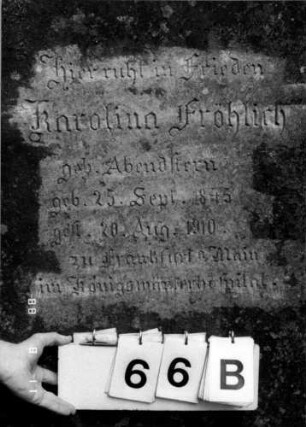 Hier ruht in Frieden
Karolina Fröhlich
geb. Abendstern
geb. 25. Sept. 1845
gest. 20. Aug. 1910.
zu Frankfurt a. Main
im Königswarterhospital.
66B